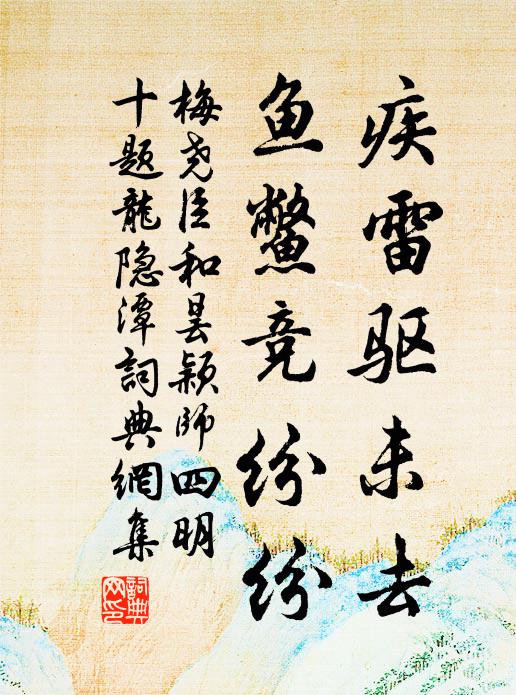 疾雷驱未去
鱼鳖竞纷纷
梅尧臣和昙颖师四明
十题龍隐潭詞典網集
詞典
网印